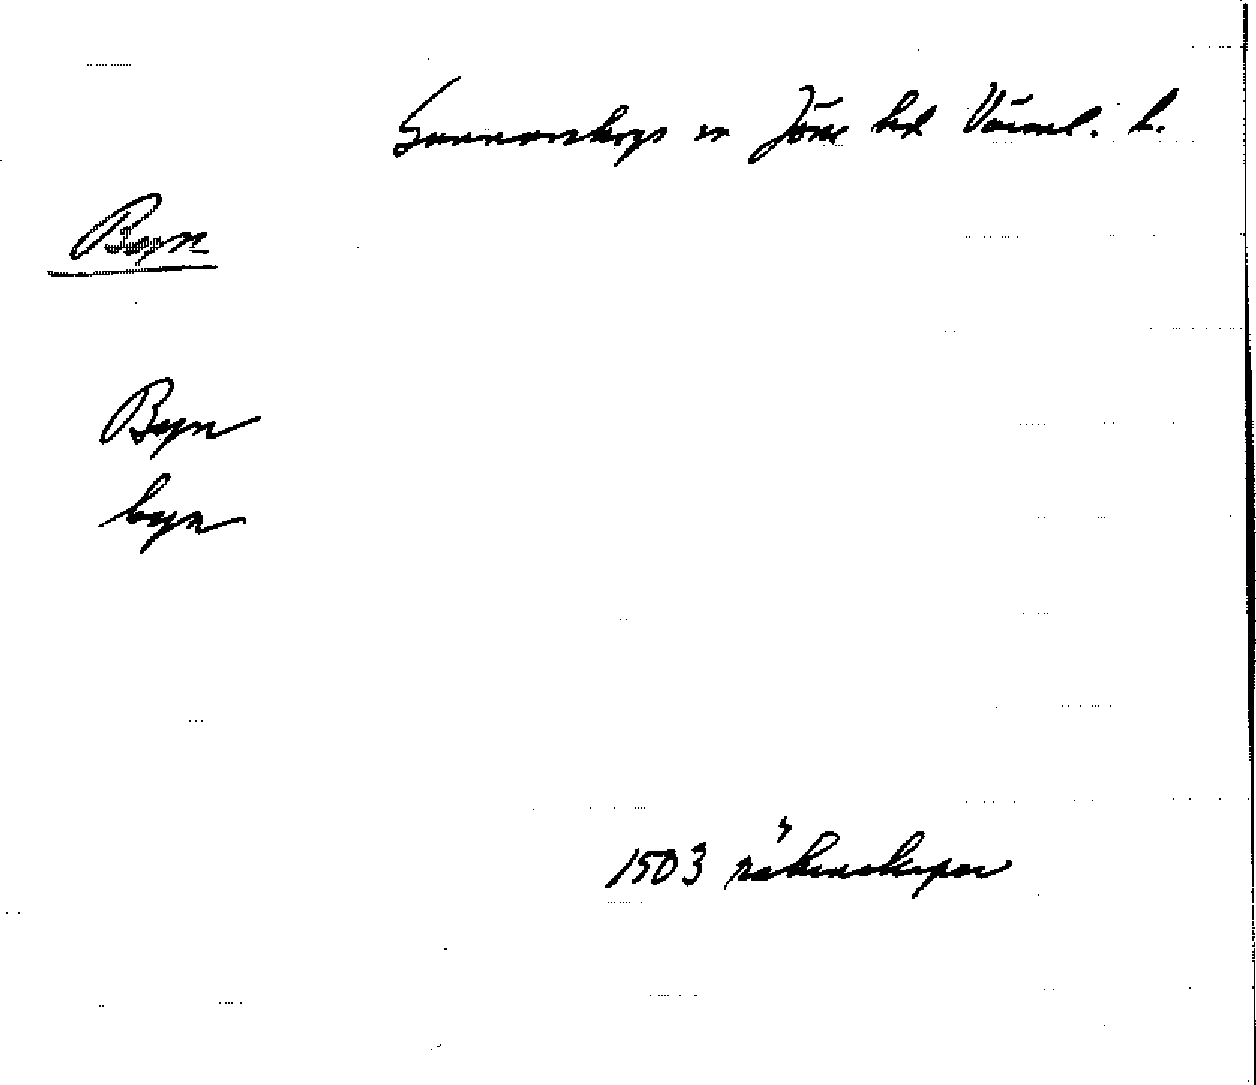 Gunnarskogs sn Jösse hd Värml. l.
Byn
Byn
byn
1503 räkenskaper